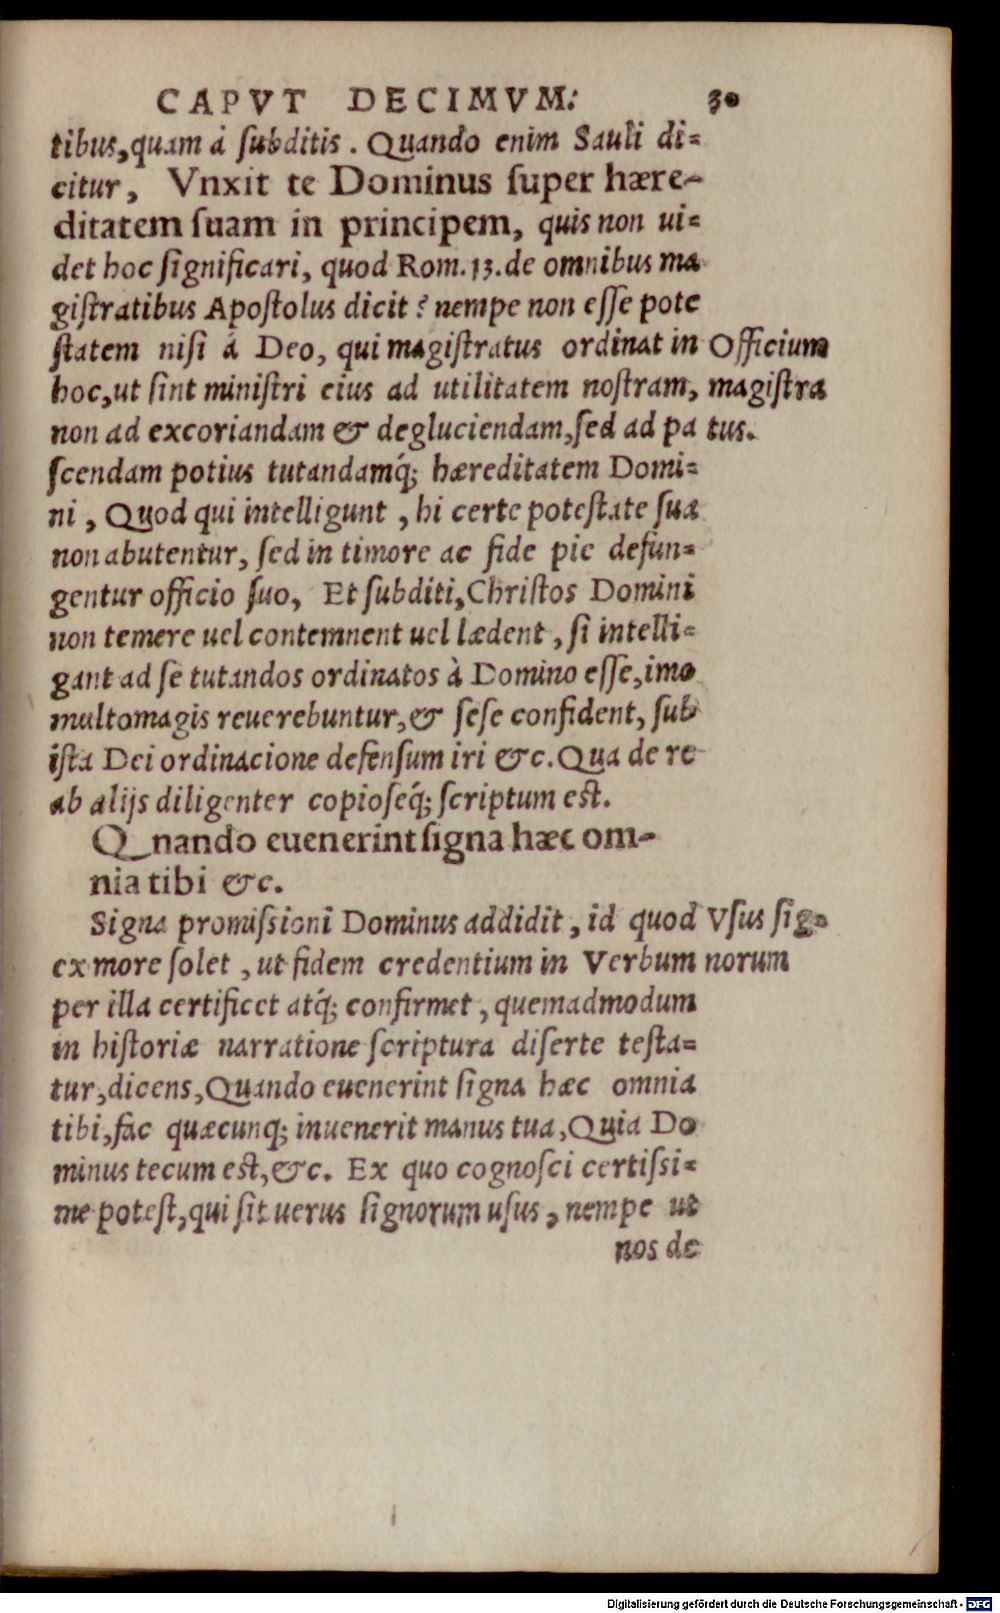 CAPVT DECIMVM. 30
tibus, quam à ſubditis. Quando enim Sauli di=
citur, Vnxit te Dominus ſuper hære-
ditatem ſuam in principem, quis non ui=
det hoc ſignificari, quod Rom. 13. de omnibus ma
giſtratibus Apoſtolus dicit? nempe non eſſe pote
ſtatem niſi á Deo, qui magiſtratus ordinat in
Officium
hoc, ut ſint miniſtri eius ad utilitatem noſtram,
magiſtra
non ad excoriandam & degluciendam, ſed ad pa
tus.
ſcendam potius tutandamq́; hæreditatem Domi=
ni, Quod qui intelligunt, hi certe poteſtate ſua
non abutentur, ſed in timore ac fide pie defun=
gentur officio ſuo, Et ſubditi, Chriſtos Domini
non temere uel contemnent uel lædent, ſi intelli=
gant ad ſe tutandos ordinatos à Domino eſſe, imo
multomagis reuerebuntur, & ſeſe confident, ſub
iſta Dei ordinacione defenſum iri &c. Qua de re
ab alijs diligenter copioſeq́; ſcriptum eſt.
Quando euenerint ſigna hæc om-
nia tibi &c.
Signa promiſsioni Dominus addidit, id quod
Vſus ſig=
ex more ſolet, ut fidem credentium in Verbum
norum
per illa certificet atq́; confirmet, quemadmodum
in hiſtoriæ narratione ſcriptura diſerte teſta=
tur, dicens, Quando euenerint ſigna hæc omnia
tibi, fac quæcunq; inuenerit manus tua, Quia Do
minus tecum eſt, &c. Ex quo cognoſci certiſsi=
me poteſt, qui ſit uerus ſignorum uſus, nempe ut
nos de
Digitalisierung gefördert durch die Deutsche Forschungsgemeinschaft - DFG